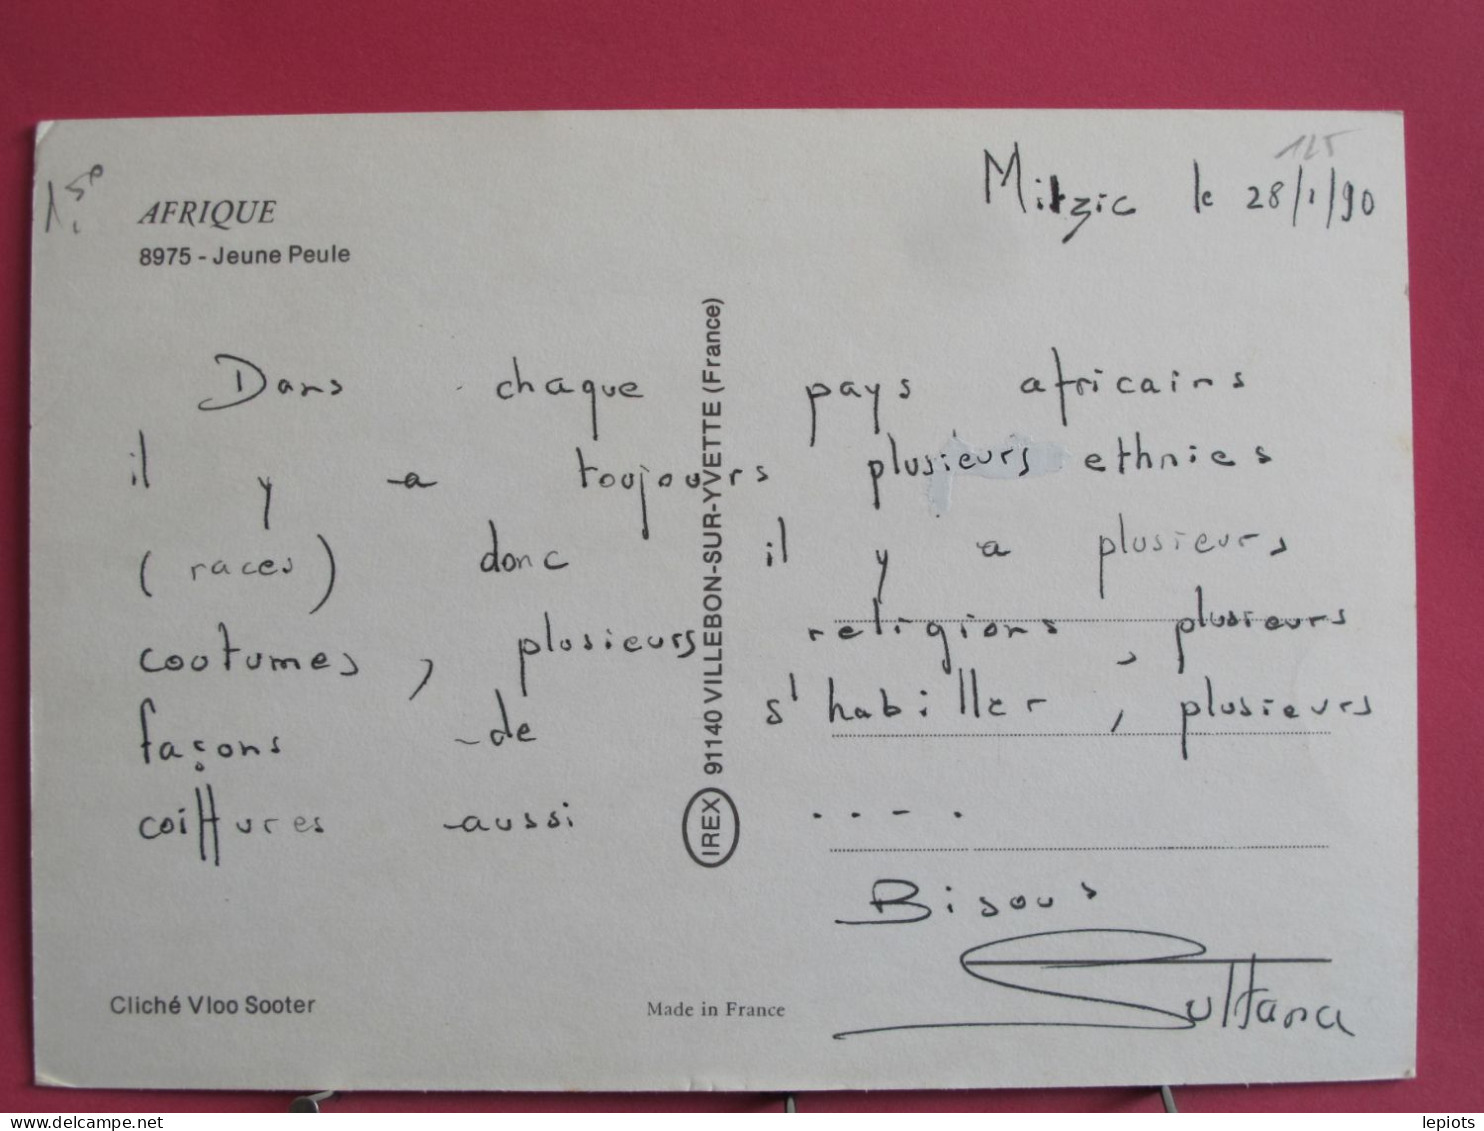 125
1,50
AFRIQUE
8975 - Jeune Peule
Mitzic le 28/1/90
Dans chaque pays africains
il y a toujours plusieurs ethnies
(races) donc il y a plusieurs
coutumes, plusieurs religions, plusieurs
façons de s'habiller, plusieurs
coiffures aussi ....
Bisous
Sultana
IREX 91140 VILLEBON-SUR-YVETTE (France)
Cliché Vloo Sooter
Made in France
delcampe.net
lepiots